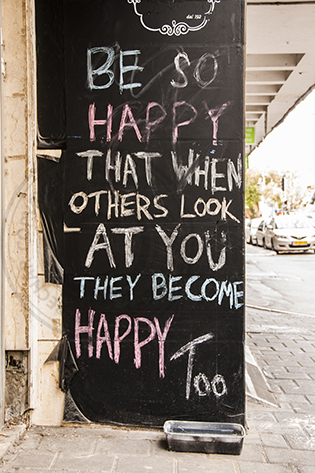 BE SO
HAPPY
THAT WHEN
OTHERS LOOK
AT YOU
THEY BECOME
HAPPY
Too